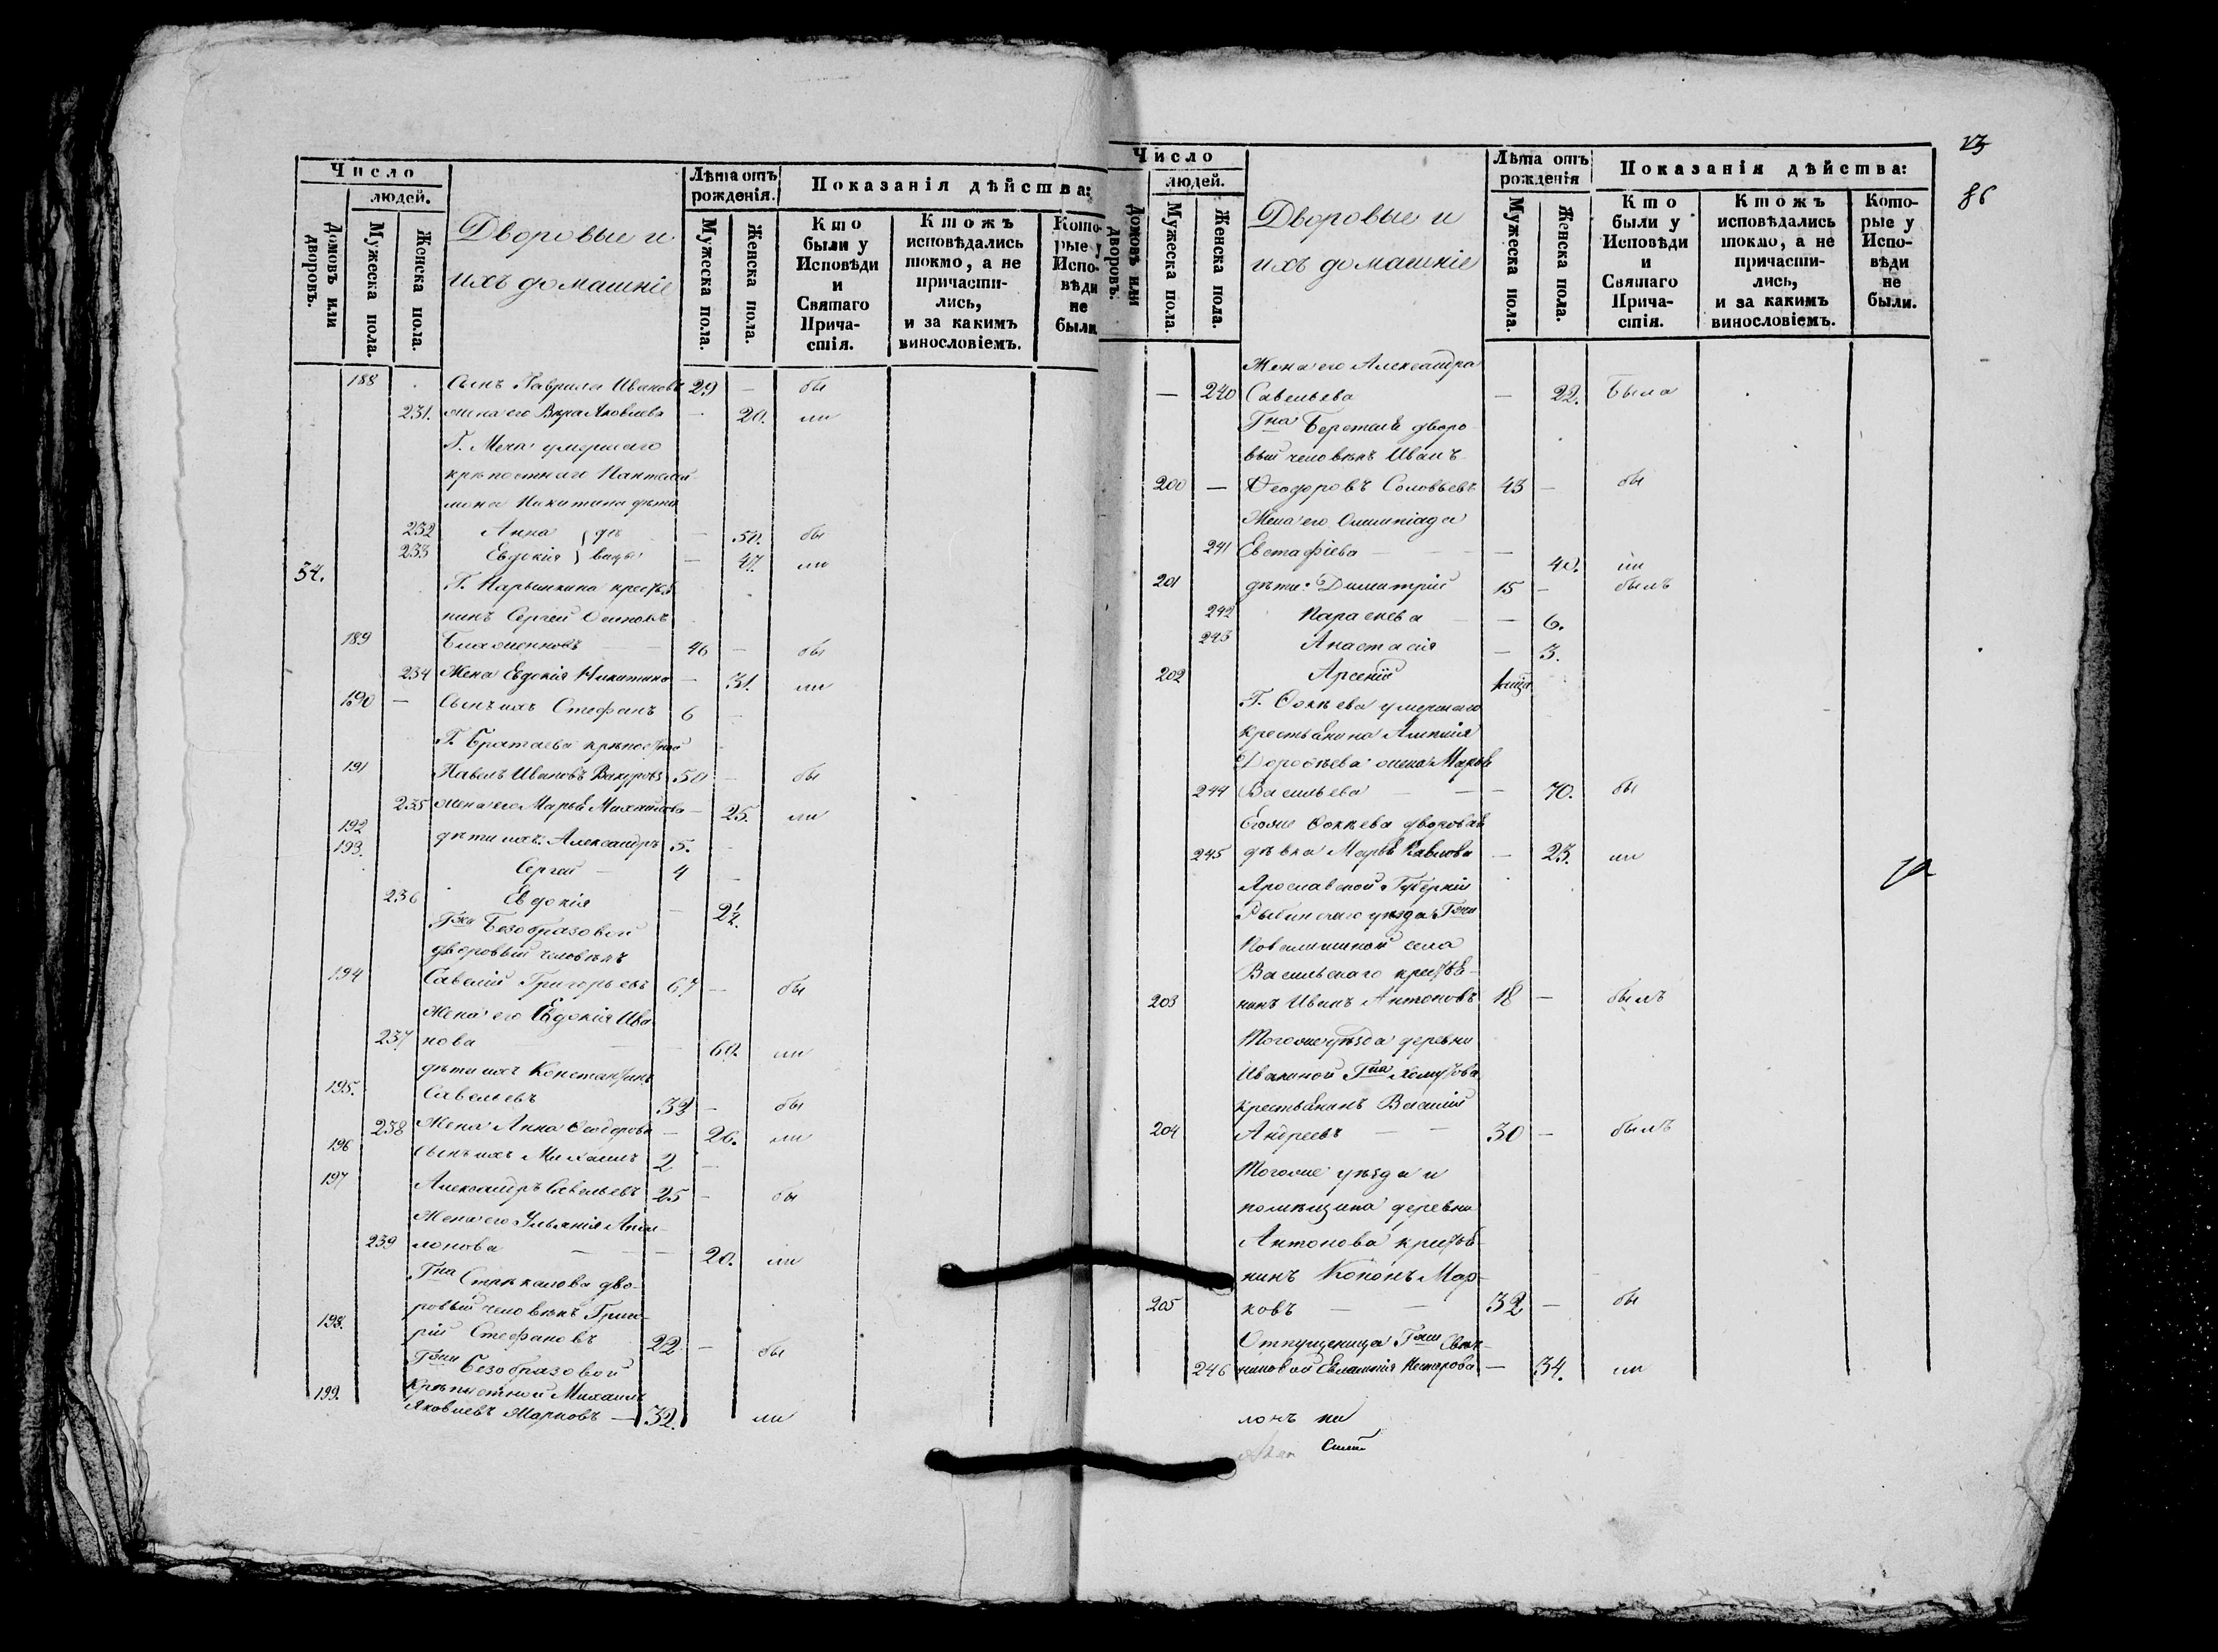 Число
людей.
Домовъ или дворовъ.
Мужеска пола.
Женска пола.
Дворовые и
ихъ домашніе
Лѣта отъ
рожденія.
Мужеска пола.
Женска пола.
Показанія дѣйства:
Кто
были у
Исповѣди
и
Святаго
Прича-
стія.
Ктожъ
исповѣдались
токмо, а не
причасти-
лись,
и за какимъ
винословіемъ.
Кото-
рые у
Испо-
вѣди
не
были
188 Сынъ Гаврила Ивановъ 29 — бы
231. жена его Вѣра Яковлева — 20. ли
умершаго
крѣпостнаго Пантелей
мона Никитина дѣти
232 Анна дѣ — 50. бы
233 Евдокія вицы — 47. ли
34. Г. Нарышкина крестья
нинъ Сергей Осиповъ
189 46 — бы
234 Жена Евдокія Никитина — 31. ли
190 — Сынъ ихъ Стефанъ 6 —
Г. Братаева крѣпостной
191 Павелъ Ивановъ 50 — бы
235 жена его Марья Михайлова — 25. ли
192 дѣти ихъ. Александръ 5. —
193. Сергей — 4 —
236 Евдокія — 2½.
Гжи Безобразовой
дворовый человѣкъ
194 Савелій Григорьевъ 67 — бы
Жена его Евдокія Ива
237 нова — 60. ли
дѣти ихъ Константинъ
195. Савельевъ 33 — бы
238 Жена Анна Ѳеодорова — 26. ли
196 сынъ ихъ Михаилъ 2 —
197 Александръ Савельевъ 25 — бы
Жена его Ульянія Апол-
239 лонова — — — 20. ли
Гна Стрѣкалова дво-
ровый человѣкъ Григо-
198. рій Стефановъ 22 — бы
Гжи Безобразовой
Крѣпостной Михаилъ
199. Яковлевъ Марковъ — 32. ли
23
86
Число
людей.
Домовъ или дворовъ.
Мужеска пола.
Женска пола.
Дворовые и
ихъ домашніе
Лѣта отъ
рожденія
Мужеска пола.
Женска пола.
Показанія дѣйства:
Кто
были у
Исповѣди
и
Святаго
Прича-
стія.
Ктожъ
исповѣдались
токмо, а не
причасти-
лись,
и за какимъ
винословіемъ.
Кото-
рые у
Испо-
вѣди
не
были.
Жена его Александра
— 240 Савельева — 22. Была
Гна дворо
вый человѣкъ Иванъ
200 — Ѳеодоровъ Соловьевъ 43 — бы
Жена его Олимпіада
241 Евстафіева — — — 40. ли
201 дѣти: Димитрій 15 — былъ
242 Параскева — — 6.
243 Анастасія — 3.
202 Арсеній
Г. Фокѣева умершаго
крестьянина
Дороѳѣева жена Марья
244 Васильева — — — 70. бы
Егоже Фокѣева дворовая
245 дѣвка Марья Павлова — 23. ли
Ярославской Губерніи
Рыбинскаго уѣзда Гжи
села
Васильскаго крестья-
203 нинъ Иванъ Антоновъ 18 — былъ
Тогоже уѣзда деревни
Гна
крестьянинъ Василій
204 Андреевъ — — 30 — былъ
Тогоже уѣзда и
помѣщика деревни
Антонова крестья-
нинъ Кононъ Мар-
205 ковъ — — 32 — бы
Отпущеница Гжи
246 Евлампія Нестерова — 34. ли